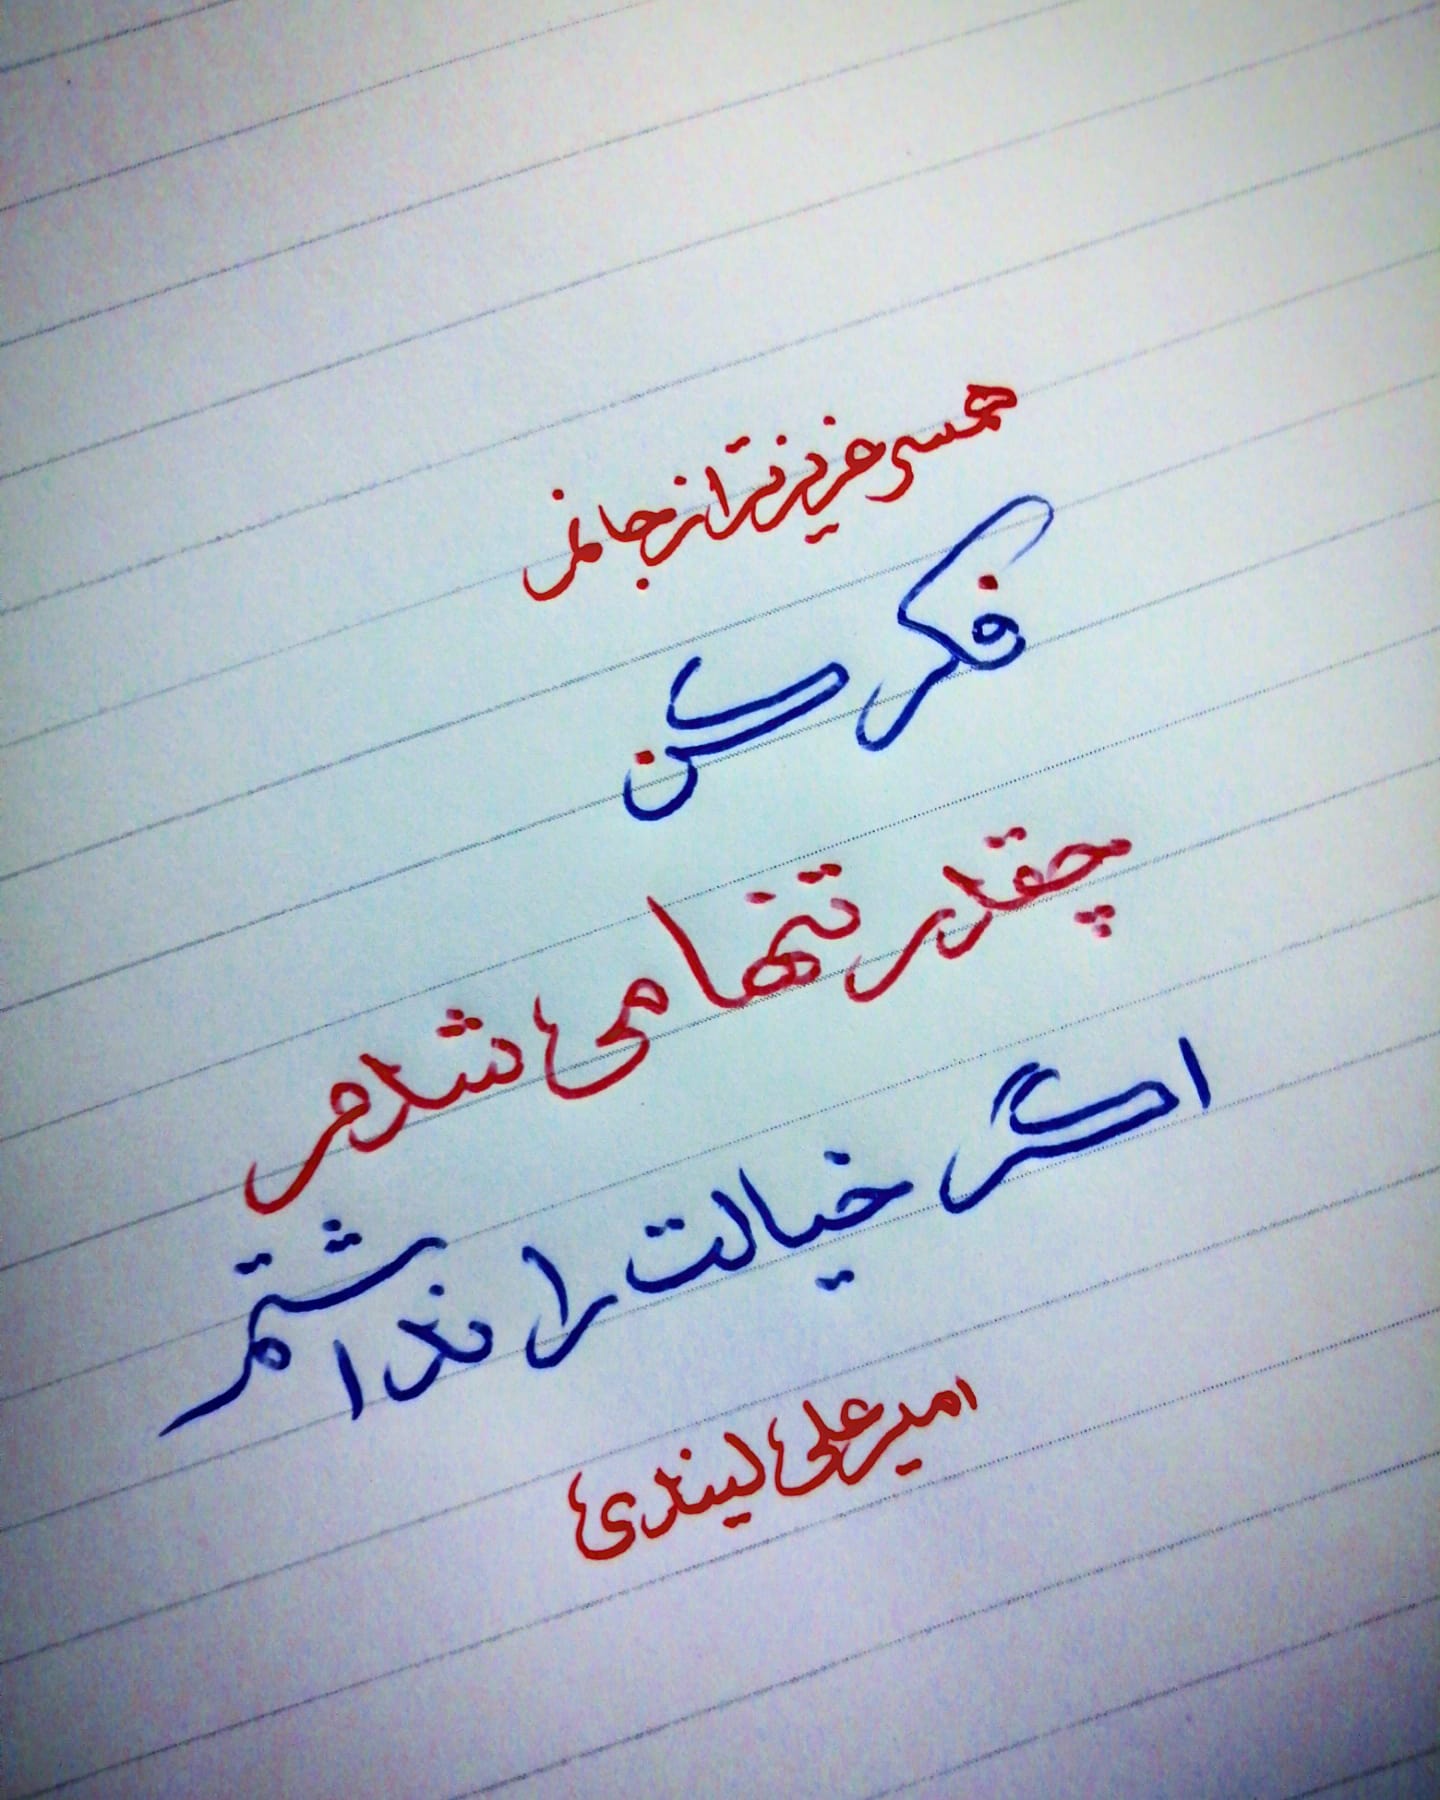 همسر عزیزتر از جانم
فکر کن
چقدر تنها می شدم
اگر خیالت را نداشتم
امیرعلی لیندی